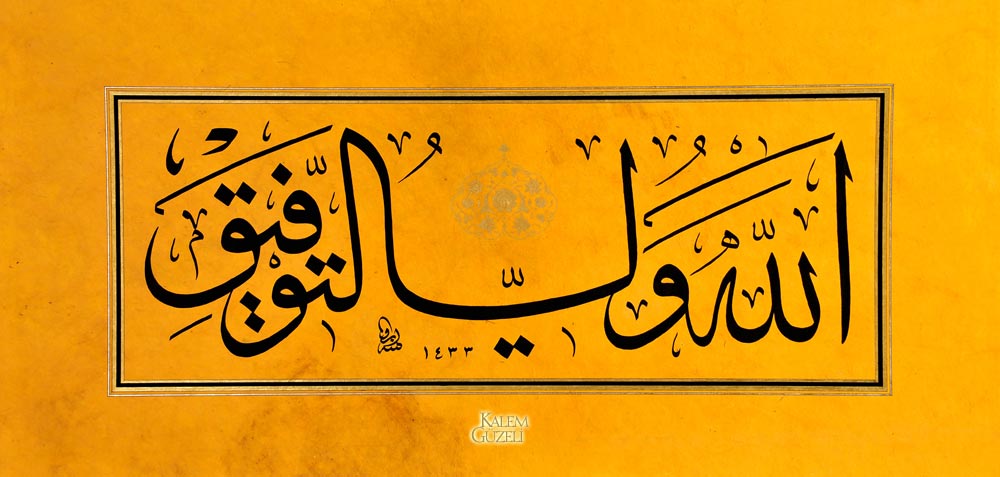 الله ولي التوفيق
١٤٣٣
KALEM
GÜZELİ